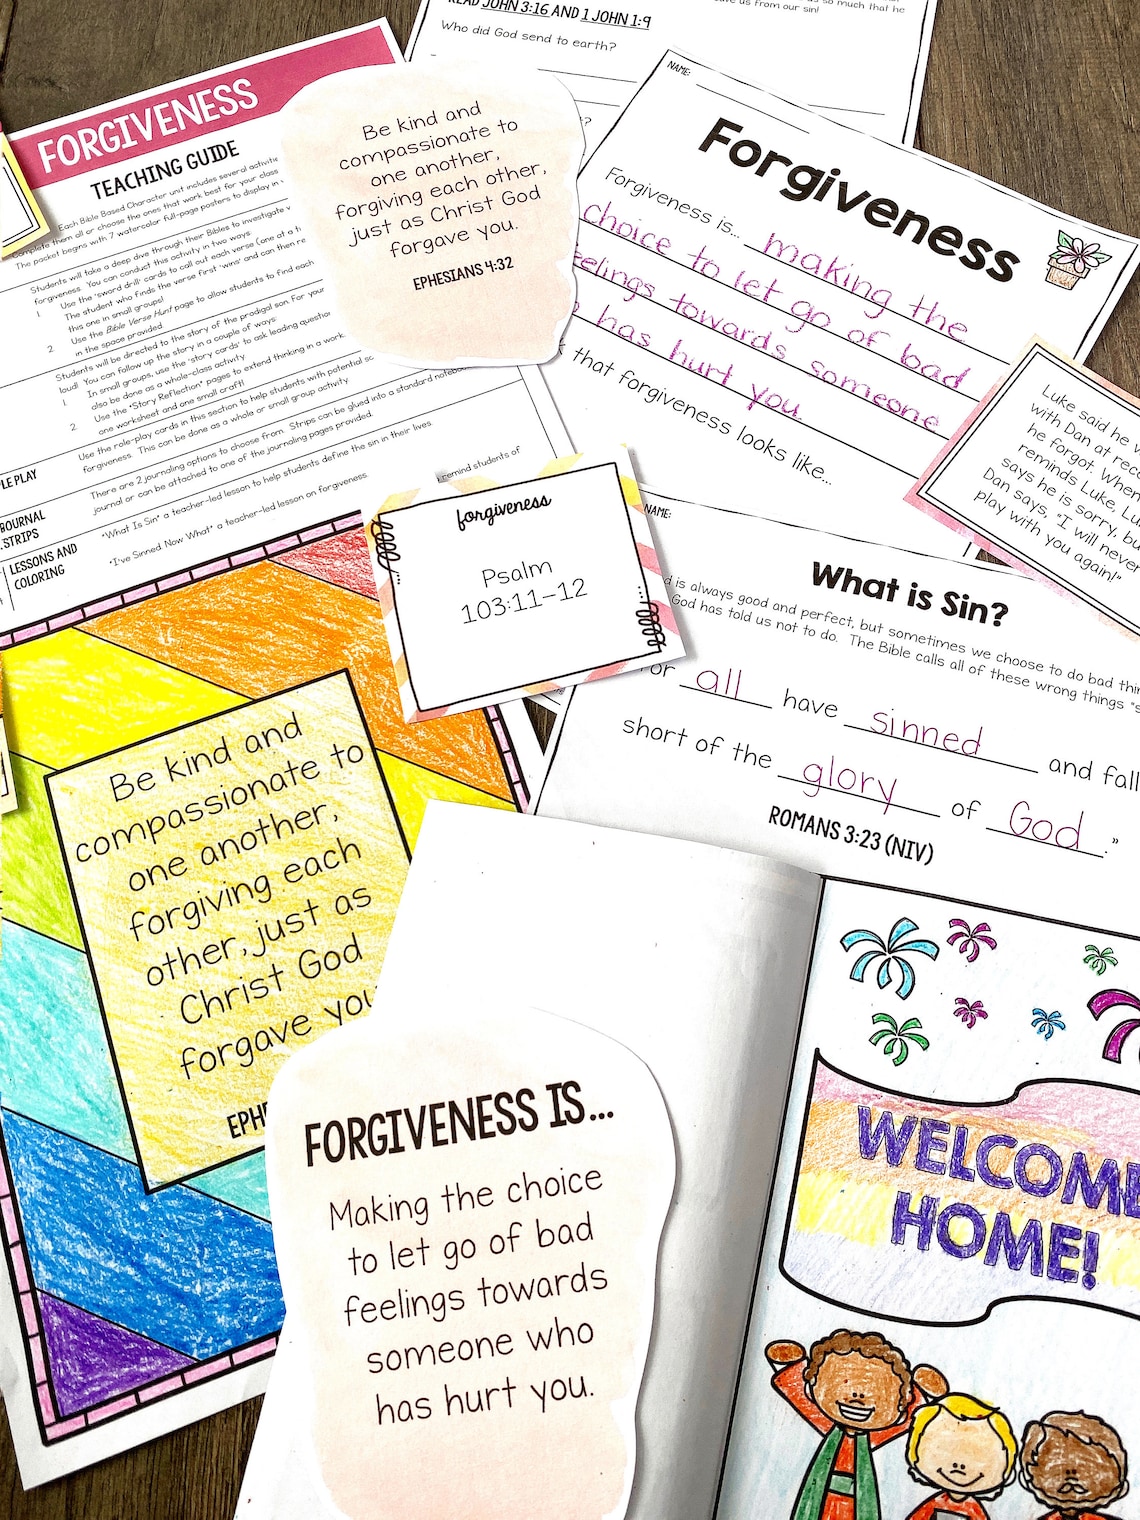 FORGIVENESS
TEACHING GUIDE
Each Bible Based Character unit includes several activitie
Complete them all or choose the ones that work best for your class
The packet begins with 7 watercolor full-page posters to display in
Students will take a deep dive through their Bibles to investigate
forgiveness. You can conduct this activity in two ways:
1. Use the "sword drill" cards to call out each verse (one at a t
The student who finds the verse first "wins" and can then re
this one in small groups!
2. Use the Bible Verse Hunt page to allow students to find each
in the space provided.
Students will be directed to the story of the prodigal son. For your
loud! You can follow up the story in a couple of ways:
1. In small groups, use the "story cards" to ask leading question
also be done as a whole-class activity
2. Use the "Story Reflection" pages to extend thinking in a work
one worksheet and one small craft!
PLE PLAY
Use the role-play cards in this section to help students with potential
forgiveness. This can be done as a whole or small group activity
JOURNAL
STRIPS
There are 2 journaling options to choose from. Strips can be glued into a standard notebook
journal or can be attached to one of the journaling pages provided.
LESSONS AND
COLORING
"What Is Sin" a teacher-led lesson to help students define the sin in their lives
"I've Sinned Now What" a teacher-led lesson on forgiveness
remind students of
Be kind and
compassionate to
one another,
forgiving each other,
just as Christ God
forgave you.
EPHESIANS 4:32
us from our sin!
so much that he
READ JOHN 3:16 AND 1 JOHN 1:9
Who did God send to earth?
NAME:
Forgiveness
Forgiveness is... making the
choice to let go of bad
feelings towards someone
has hurt you
that forgiveness looks like...
Luke said he
with Dan at rece
he forgot. When
reminds Luke, Lu
says he is sorry, bu
Dan says, "I will never
play with you again!"
forgiveness
Psalm
103:11-12
NAME:
What is Sin?
is always good and perfect, but sometimes we choose to do bad thin
God has told us not to do. The Bible calls all of these wrong things "s
For all have sinned and fall
short of the glory of God."
ROMANS 3:23 (NIV)
Be kind and
compassionate to
one another,
forgiving each
other, just as
Christ God
forgave you
EPH
FORGIVENESS IS...
Making the choice
to let go of bad
feelings towards
someone who
has hurt you.
WELCOME
HOME!